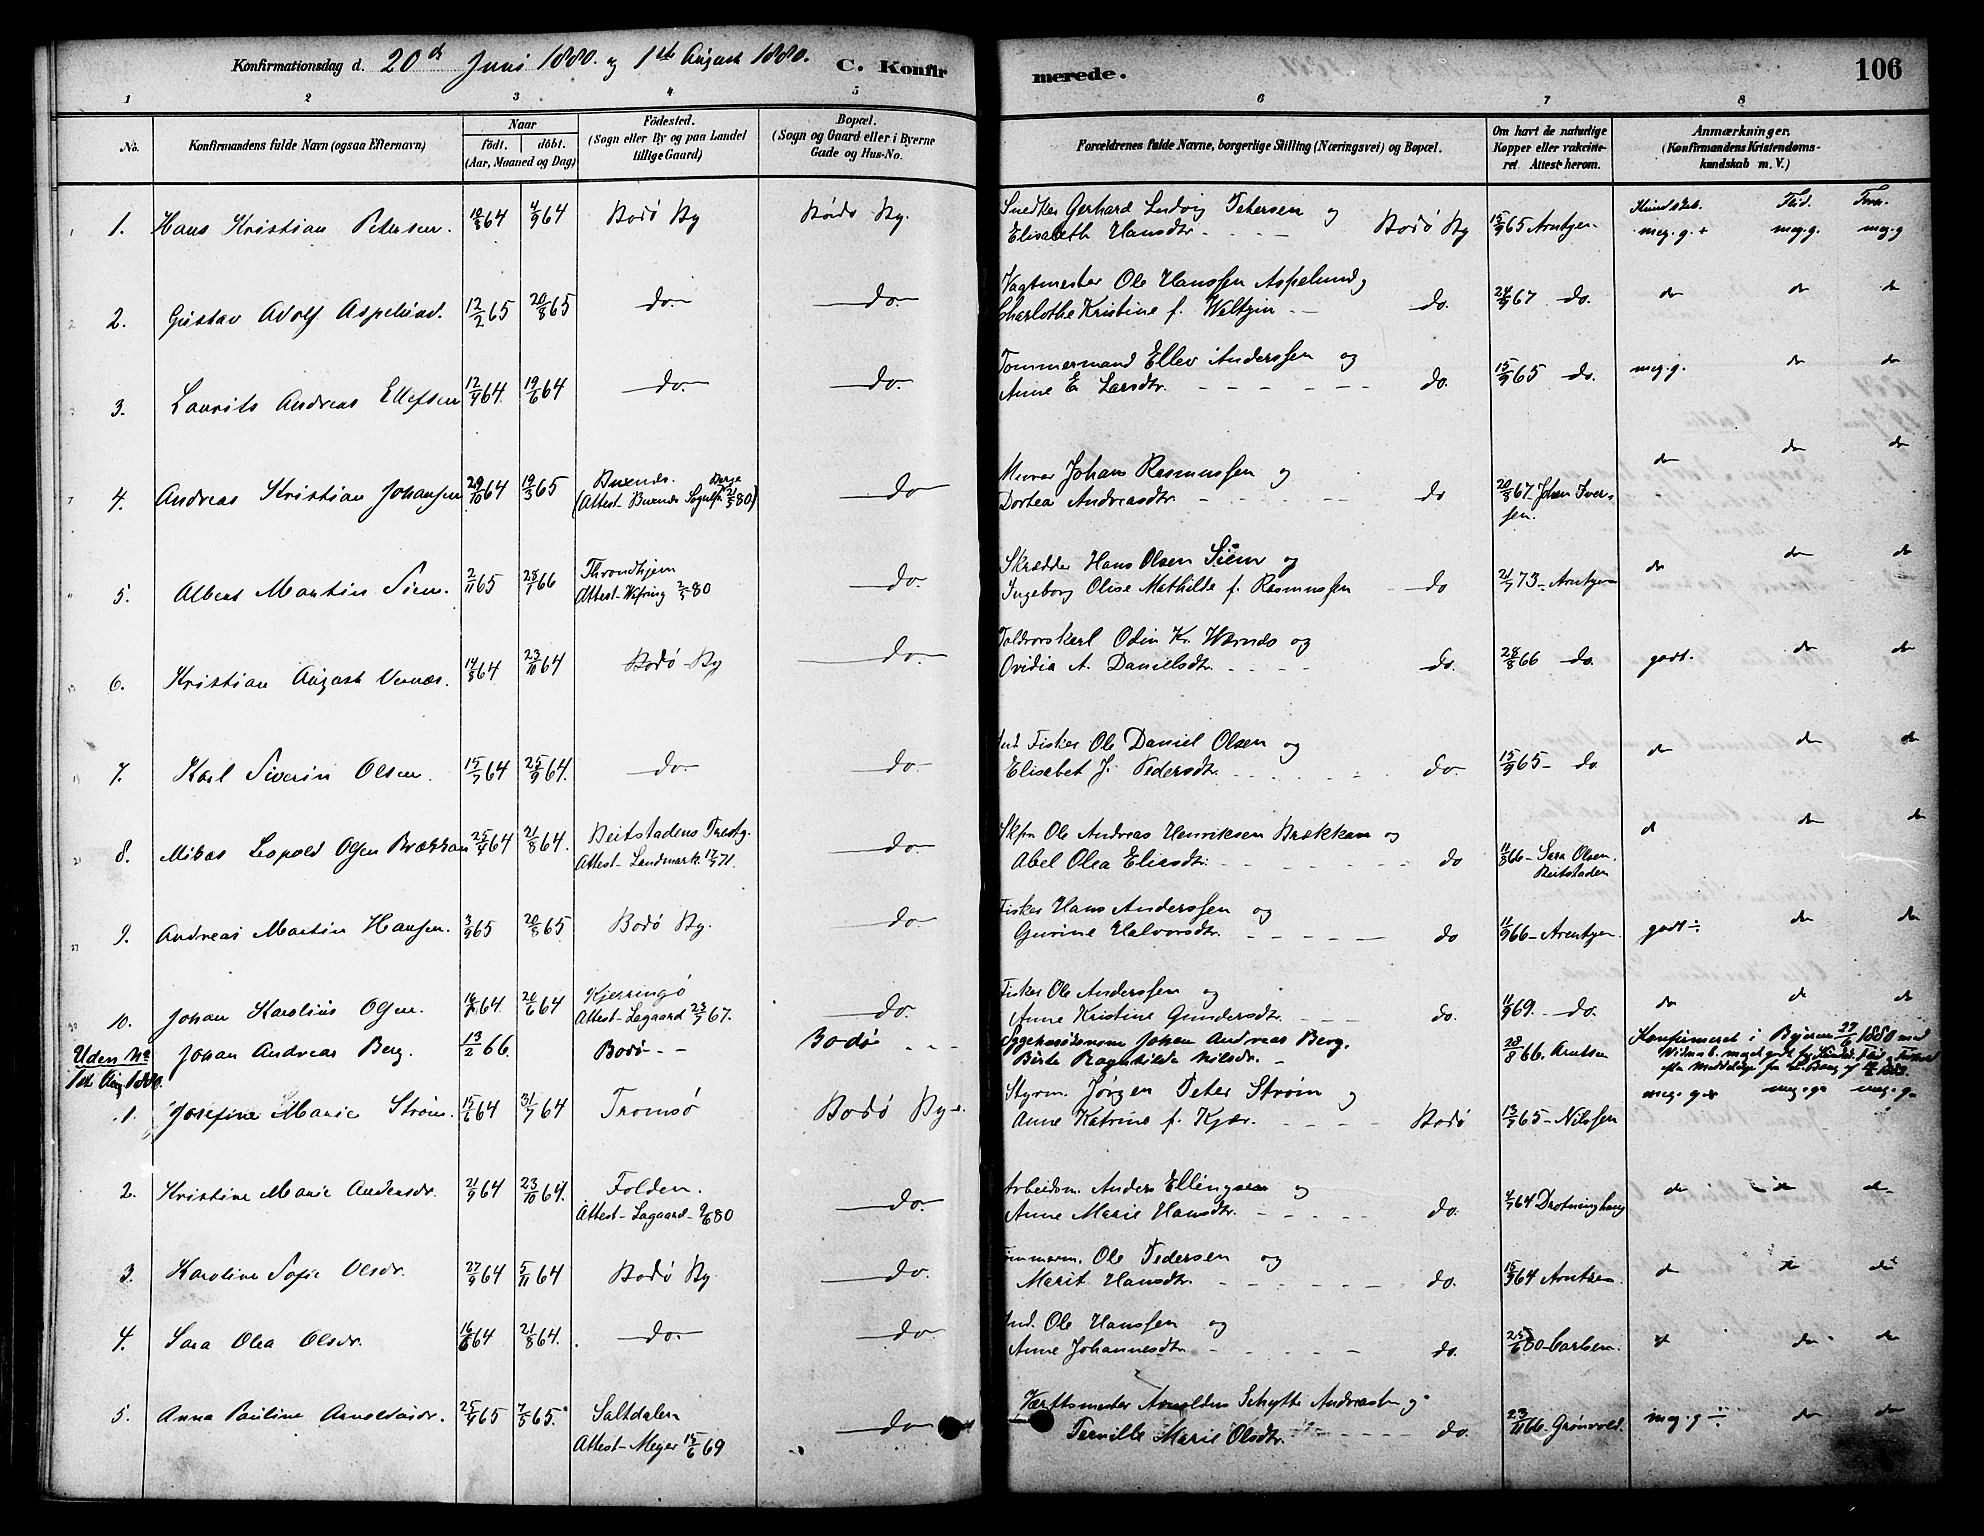 Konfirmationsdag d. 20d Juni 1880. og 1ste August 1880. C. Konfirmerede. 106
1 2 3 4 5 6 7 8
No. Konfirmandens fulde Navn (ogsaa Efternavn) Naar födt. döbt. (Aar, Maaned og Dag) Födested. (Sogn eller By og paa Landet tillige Gaard) Bopæl. (Sogn og Gaard eller i Byerne Gade og Hus-No. Forældrenes fulde Navne, borgerlige Stilling (Næringsvei) og Bopæl. Om havt de naturlige Kopper eller vakcineret Attest herom. Anmærkninger. (Konfirmandens Kristendomskundskab m. V.)
Kundskab. Flid.
1. Hans Kristian Petersen. 64 4/9 64 Bodø By Bodø By. Snedker Gerhard Ludvig Petersen og
Elisabeth Hansdtr. Bodø By 15/9 65 Arntzen meg. g. + meg. g. meg. g
2. Gustav Adolf Aspelund. 12/2 65 20/8 65 do. do. Vagtmester Ole Hanssen Aspelund
Charlothe Kristine f. Weltzin do. 24/9 67 do. do do do
3. Laurits Andreas Ellefsen 12/4 64. 19/6 64 do. do. Tommermand Ellev Anderssen og
Anne E. Larsdtr. do. 15/9 65 do. meg. g. do do
4. Andreas Kristian Johansen 29/10 64 19/3 65 Buxnes. do Murer Johan Rasmussen og
(Attest Buxnæs 80) Dortea Andreasdtr. do 20/8 67 Johan Iverssen. do do do
5. Albert Martin Siem. 2/11 65 28/1 66 Throndhjem do Skrædder Hans Olsen Siem og
Attest 80 Ingeborg Olise Mathilde f. Rasmussen do 21/7 73 Arntzen do do do
6. Kristian August Vernæs. 14/8 64 23/10 64 Bodø By do. Toldrorskarl Odin Kr. Wernæs og
Ovidia A. Danielsdtr. do. 28/8 66 do. godt. do do
7. Karl Siverin Olsen. 15/7 64 25/9 64. do. do. Ind. Fisker Ole Daniel Olsen og
Elisabet J. Pedersdtr. do. 15/9 65 do do do do
8. Mikas Leopold Olsen Brækkan 25/4 64 21/8 64. Beitstadens do. Skpr. Ole Andreas Henriksen Brækkan og
Attest Landmark 71. Abel Olea Eliasdtr. do 11/8 66 Sara Olsen. Beitstaden do do do
9. Andreas Martin Hansen. 3/4 65 20/8 65 Bodø By. do Fisker Hans Anderssen og
Gurine Halvorsdtr. do 11/9 66 Arentzen godt ÷ do do
10. Johan Karelius Olsen. 64 20/6 64 Kjerringø do. Fisker Ole Anderssen og
Attest Lagaard 67. Anne Kristine Gundersdtr. do. 11/9 69. do. do do do
Uden No Johan Andreas Berg. 13/2 66. Bodø Bodø Johan Andreas Berg.
Birte Ragnhilda Nilsdr. 28/8 66. Arntsen Konfirmeret i Byens 1880 med
1ste Aug 1880.
1. Josefine Marie Strøm. 15/6 64 31/7 64 Tromsø Bodø By Styrm. Jørgen Peter Strøm og
Anne Katrine f. Kjær. Bodø 13/7 65 Nilssen meg. g. meg. g. meg. g.
2. Kristine Marie Andersdr. 21/9 64 23/10 64. Folden. do. Arbeidsm. Anders Ellingsen og
Attest Lagaard 80 Anne Marie Hansdtr. do. 4/7 64 Drotninghaug do do do
3. Karoline Sofie Olsdr. 27/9 64 5/11 64 Bodø By do. Tømmerm. Ole Pedersen og
Marit Hansdtr. do. 15/9 64 Arntzen do do do
4. Sara Olea Olsdr. 16/6 64 21/8 64. do. do Ind. Ole Hanssen og
Anne Johannesdtr. do. 25/6 80 Carlsen. do do do
5. Anna Pauline Arnoldusdr. 25/4 65 7/5 65. Saltdalen do Værftsmester Arnoldus Schytte Andreasen og
Attest Meyer 15/6 69 Pernille Marie Olsdtr. do. 23/11 66. Grønvold. meg. g ÷ do do